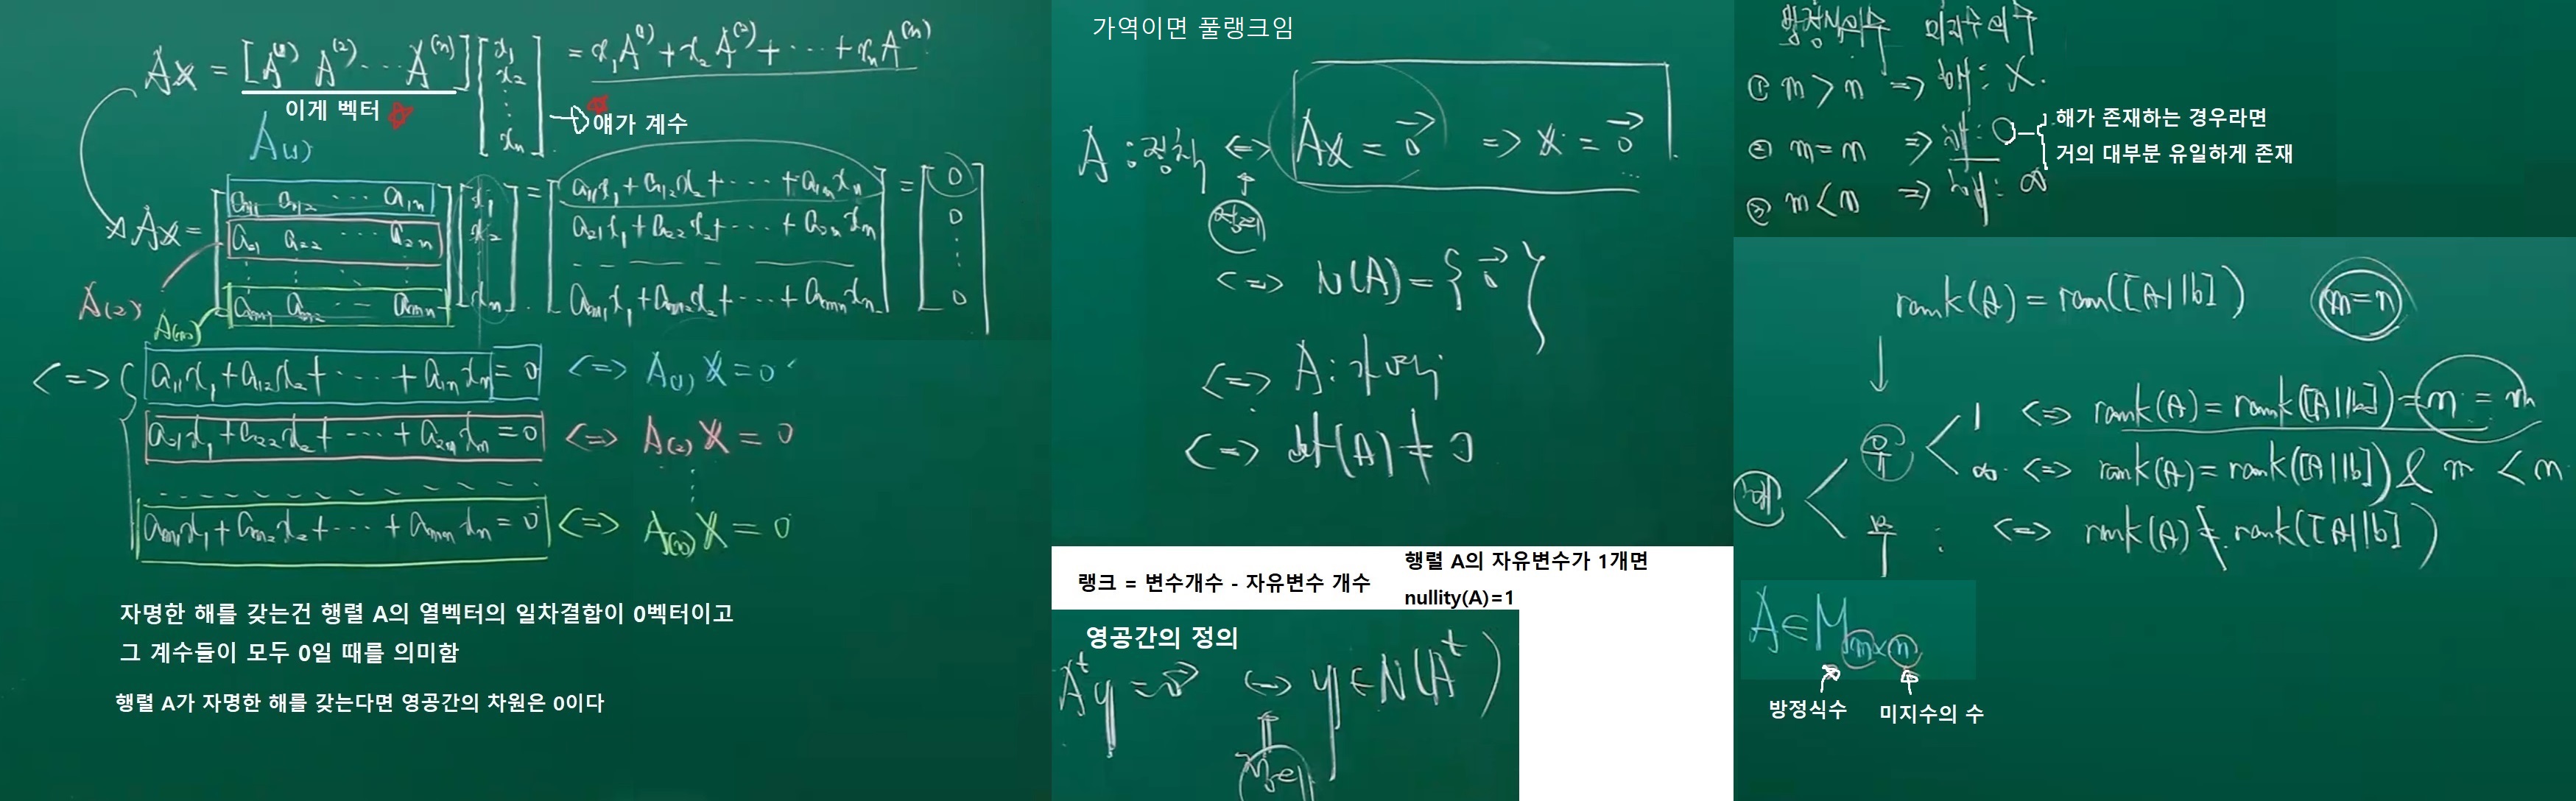 Ax = [A⁽¹⁾ A⁽²⁾ ⋯ A⁽ⁿ⁾] [x₁ x₂ ⋮ xₙ] = x₁A⁽¹⁾ + x₂A⁽²⁾ + ⋯ + xₙA⁽ⁿ⁾
이게 벡터
얘가 계수
A₍₁₎
Ax = [a₁₁ a₁₂ ⋯ a₁ₙ
a₂₁ a₂₂ ⋯ a₂ₙ
⋮
aₘ₁ aₘ₂ ⋯ aₘₙ] [x₁ x₂ ⋮ xₙ] = [a₁₁x₁ + a₁₂x₂ + ⋯ + a₁ₙxₙ
a₂₁x₁ + a₂₂x₂ + ⋯ + a₂ₙxₙ
aₘ₁x₁ + aₘ₂x₂ + ⋯ + aₘₙxₙ] = [0 0 ⋮ 0]
A₍₂₎
A₍ₘ₎
<=> a₁₁x₁ + a₁₂x₂ + ⋯ + a₁ₙxₙ = 0 <=> A₍₁₎X = 0
a₂₁x₁ + a₂₂x₂ + ⋯ + a₂ₙxₙ = 0 <=> A₍₂₎X = 0
⋮
aₘ₁x₁ + aₘ₂x₂ + ⋯ + aₘₙxₙ = 0 <=> A₍ₘ₎X = 0
자명한 해를 갖는건 행렬 A의 열벡터의 일차결합이 0벡터이고
그 계수들이 모두 0일 때를 의미함
행렬 A가 자명한 해를 갖는다면 영공간의 차원은 0이다
가역이면 풀랭크임
A : 정칙 <=> Ax = 0⃗ => x = 0⃗
<=> N(A) = {0⃗}
<=> A : 가역
<=> det(A) ≠ 0
랭크 = 변수개수 - 자유변수 개수
행렬 A의 자유변수가 1개면
nullity(A)=1
영공간의 정의
Aᵗy = 0⃗ <=> y ∈ N(Aᵗ)
방정식의수 미지수의수
① m > n => 해 : X.
② m = n => 해 : O
해가 존재하는 경우라면
거의 대부분 유일하게 존재
③ m < n => 해 : ∞
rank(A) = ran([A|b]) m = n
해
유
1 <=> rank(A) = rank([A|b]) = n = m
∞ <=> rank(A) = rank([A|b]) & m < n
무 : <=> rank(A) ≠ rank([A|b])
A ∈ Mₘₓₙ
방정식수
미지수의 수